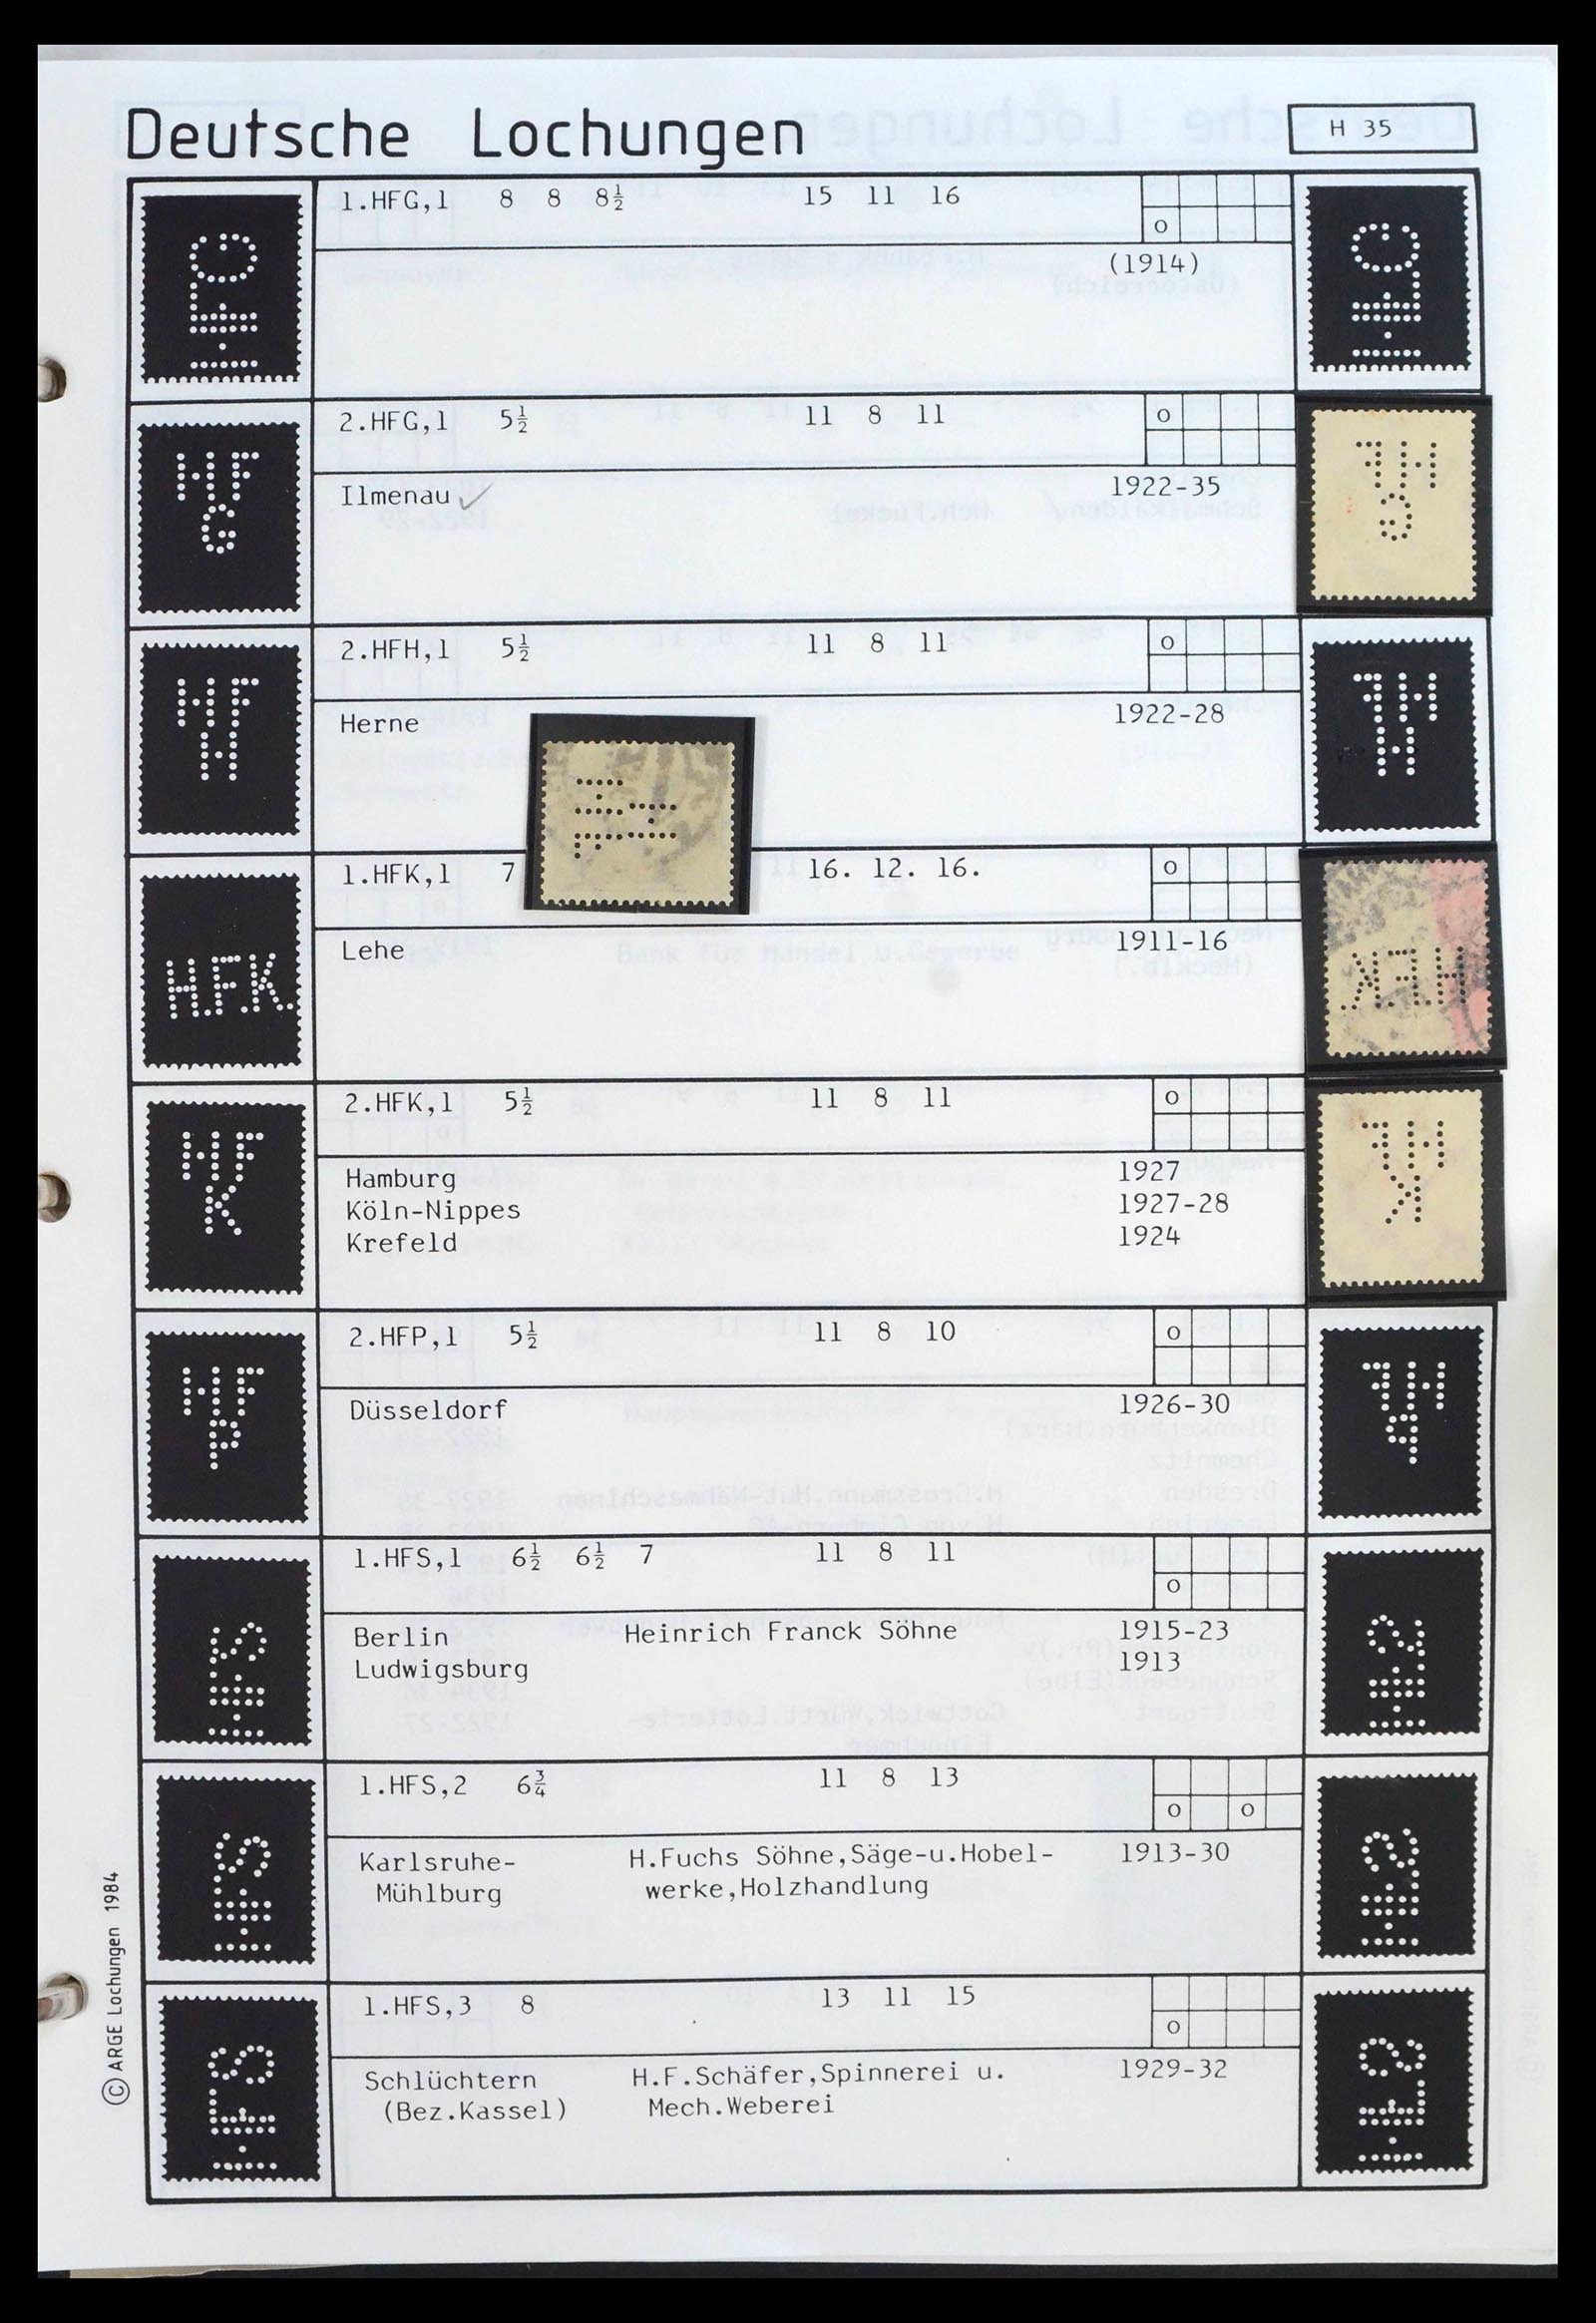 Deutsche Lochungen
H 35
1.HFG,1 8 8 8½ 15 11 16
o
(1914)
HFG
2.HFG,1 5½ 11 8 11
o
Ilmenau ✓ 1922-35
HF
G
2.HFH,1 5½ 11 8 11
o
Herne 1922-28
HF
H
1.HFK,1 7 16. 12. 16.
o
Lehe 1911-16
H.F.K.
2.HFK,1 5½ 11 8 11
o
Hamburg 1927
Köln-Nippes 1927-28
Krefeld 1924
HF
K
2.HFP,1 5½ 11 8 10
o
Düsseldorf 1926-30
HF
P
1.HFS,1 6½ 6½ 7 11 8 11
o
Berlin Heinrich Franck Söhne 1915-23
Ludwigsburg 1913
HFS
1.HFS,2 6¾ 11 8 13
o o
Karlsruhe- H.Fuchs Söhne,Säge-u.Hobel- 1913-30
Mühlburg werke,Holzhandlung
HFS
1.HFS,3 8 13 11 15
o
Schlüchtern H.F.Schäfer,Spinnerei u. 1929-32
(Bez.Kassel) Mech.Weberei
HFS
© ARGE Lochungen 1984